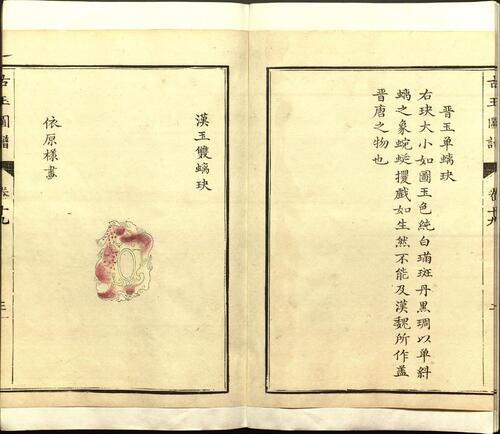 晋玉单螭玦
右玦大小如圖玉色純白璊斑丹黒琱以单斜
螭之象蜿蜒攫戲如生然不能及漢魏所作盖
晋唐之物也
古玉圖譜
卷十九
漢玉雙螭玦
依原樣畫
古玉圖譜
卷十九